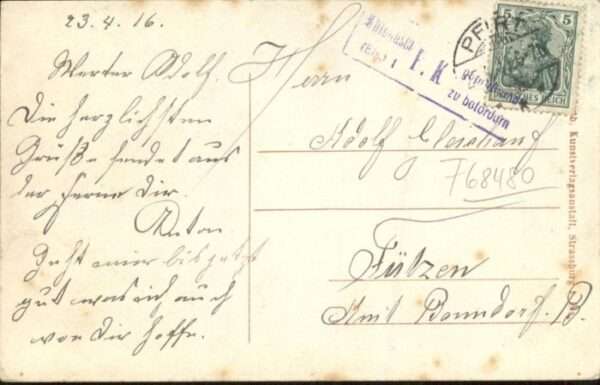 23.4.16.
Werter Adolf.
Die herzlichsten
Grüße sendet aus
der Ferne Dir.
Anton
Geht mir bis jetzt
gut was ich auch
von Dir hoffe.
Herrn
Adolf
768480
Fützen
Amt Bonndorf. B.
PFIRT
5 5
DEUTSCHES REICH
F. K.
zu befördern
Kunstverlagsanstalt, Strassburg